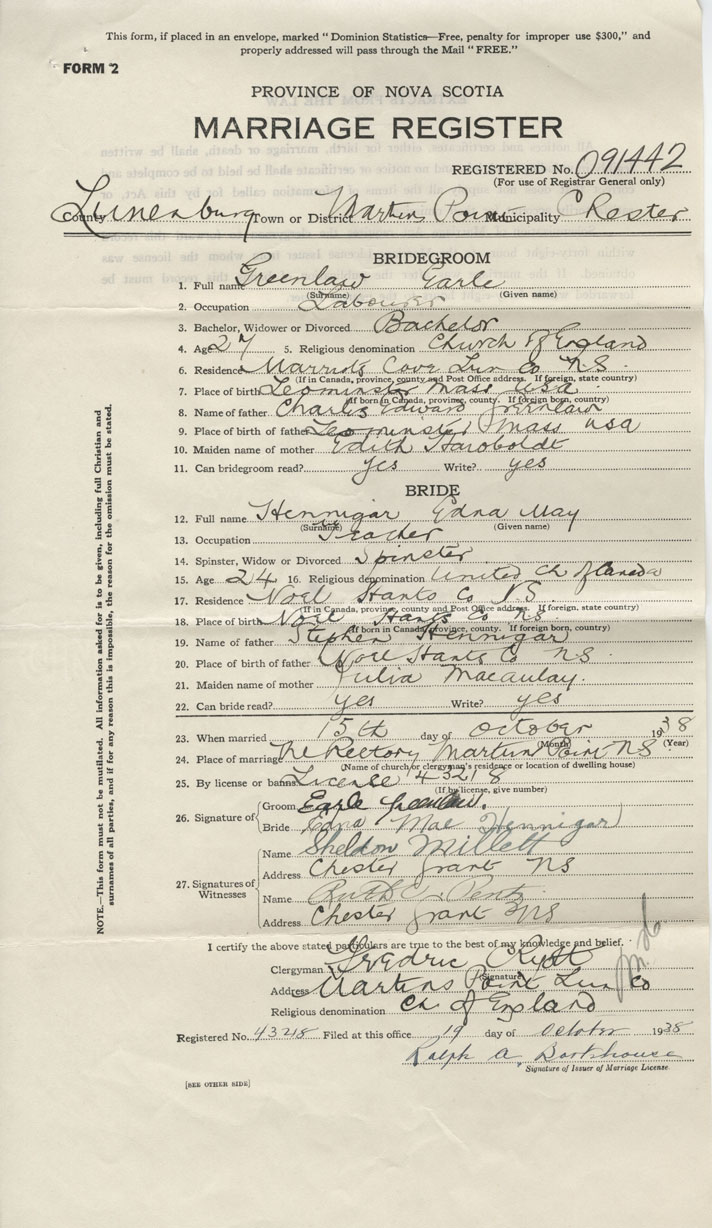 This form, if placed in an envelope, marked "Dominion Statistics—Free, penalty for improper use $300," and
properly addressed will pass through the Mail "FREE."
FORM 2
PROVINCE OF NOVA SCOTIA
MARRIAGE REGISTER
REGISTERED No. 091442
(For use of Registrar General only)
County Lunenburg Town or District Martins Point Municipality Chester
BRIDEGROOM
1. Full name Greenlaw Earle
(Surname) (Given name)
2. Occupation Labourer
3. Bachelor, Widower or Divorced Bachelor
4. Age 27 5. Religious denomination Church of England
6. Residence Marriots Cove Lun Co NS
(If in Canada, province, county and Post Office address. If foreign, state country)
7. Place of birth Leominster Mass USA
(If born in Canada, province, county. If foreign born, country)
8. Name of father Charles Edward Greenlaw
9. Place of birth of father Leominster Mass USA
10. Maiden name of mother Edith
11. Can bridegroom read? yes Write? yes
BRIDE
12. Full name Hennigar Edna May
(Surname) (Given name)
13. Occupation Teacher
14. Spinster, Widow or Divorced Spinster
15. Age 24 16. Religious denomination United Ch of Canada
17. Residence Noel Hants Co NS
(If in Canada, province, county and Post Office address. If foreign, state country)
18. Place of birth Noel Hants Co NS
(If born in Canada, province, county. If foreign born, country)
19. Name of father Stephen Hennigar
20. Place of birth of father Noel Hants Co NS
21. Maiden name of mother Julia Macaulay.
22. Can bride read? yes Write? yes
23. When married 15th day of October 1938
(Month) (Year)
24. Place of marriage The Rectory Martins Point NS
(Name of church or clergyman's residence or location of dwelling house)
25. By license or banns License 43218
(If by license, give number)
26. Signature of Groom Earle Greenlaw.
Bride Edna Mae Hennigar
27. Signatures of Witnesses
Name Sheldon Millett
Address Chester Grant NS
Name Ruth C. Pentz
Address Chester Grant NS
I certify the above stated particulars are true to the best of my knowledge and belief.
Clergyman Fredric
(Signature)
Address Martins Point Lun Co
Religious denomination Ch of England
Registered No. 43218 Filed at this office 19 day of October 1938
Ralph A. Barkhouse
Signature of Issuer of Marriage License.
[SEE OTHER SIDE]
NOTE.—This form must not be mutilated. All information asked for is to be given, including full Christian and
surnames of all parties, and if for any reason this is impossible, the reason for the omission must be stated.